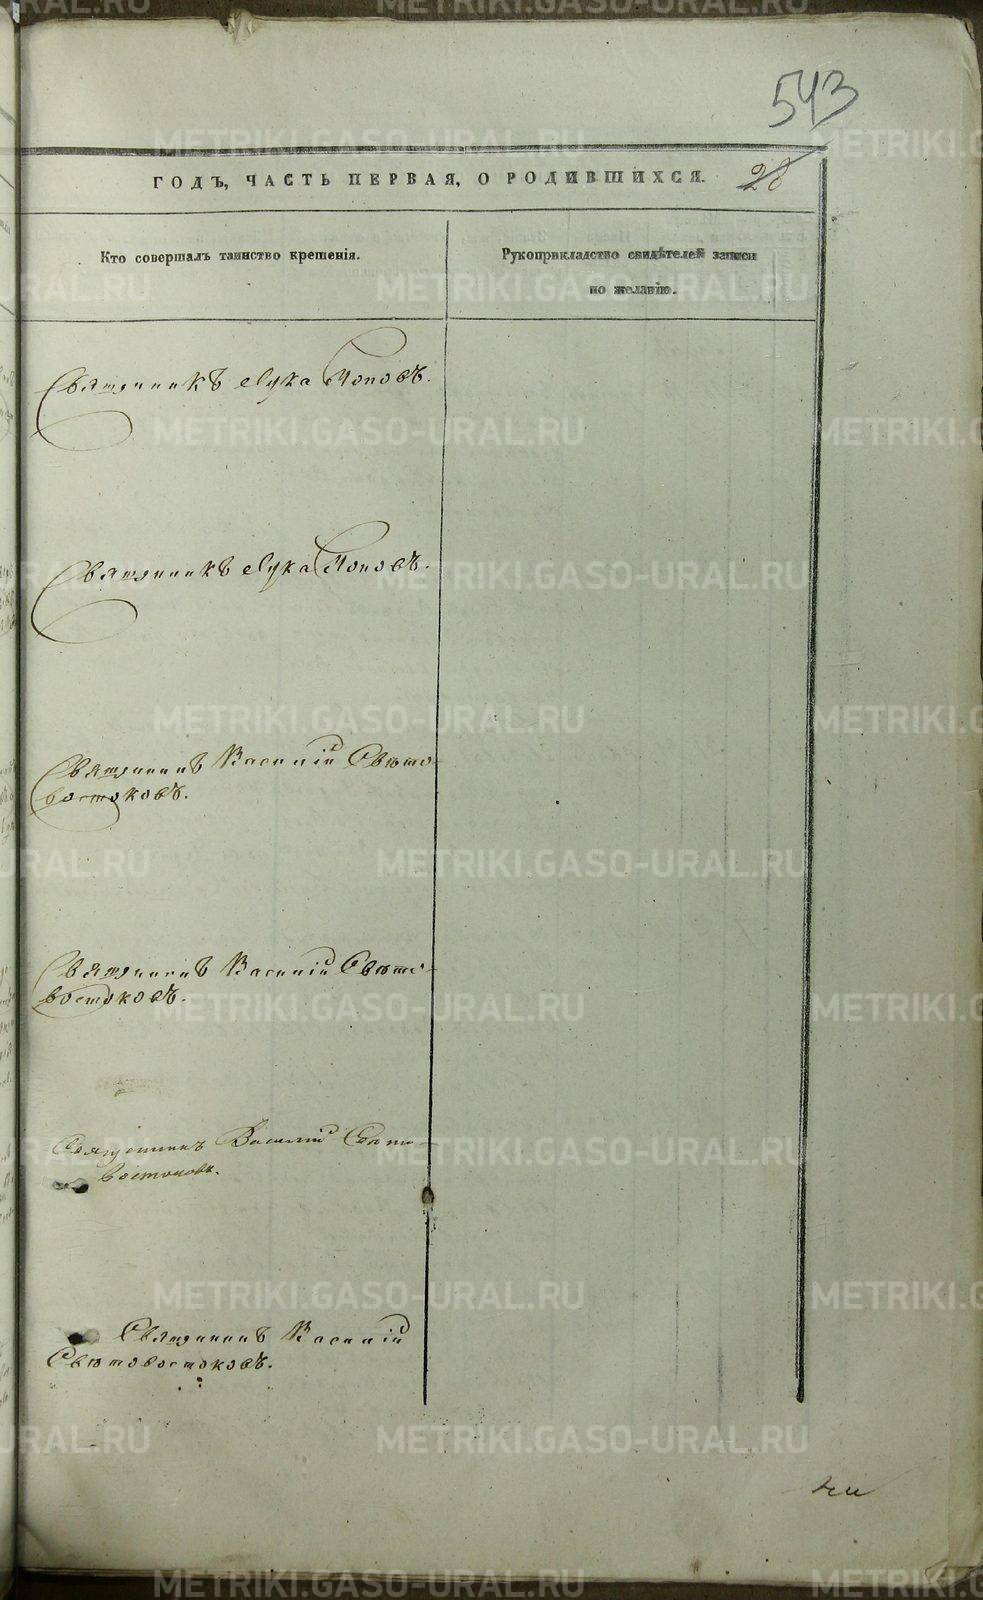 543
ГОДЪ, ЧАСТЬ ПЕРВАЯ, О РОДИВШИХСЯ. 28
Кто совершалъ таинство крещенія.
Рукоприкладство свидѣтелей записи
по желанію.
Священникъ Лука Поповъ.
Священникъ Лука Поповъ.
Священникъ Василій Свѣто-
востоковъ.
Священникъ Василій Свѣто-
востоковъ.
Священникъ Василій Свѣто-
востоковъ.
Священникъ Василій
Свѣтовостоковъ.
METRIKI.GASO-URAL.RU